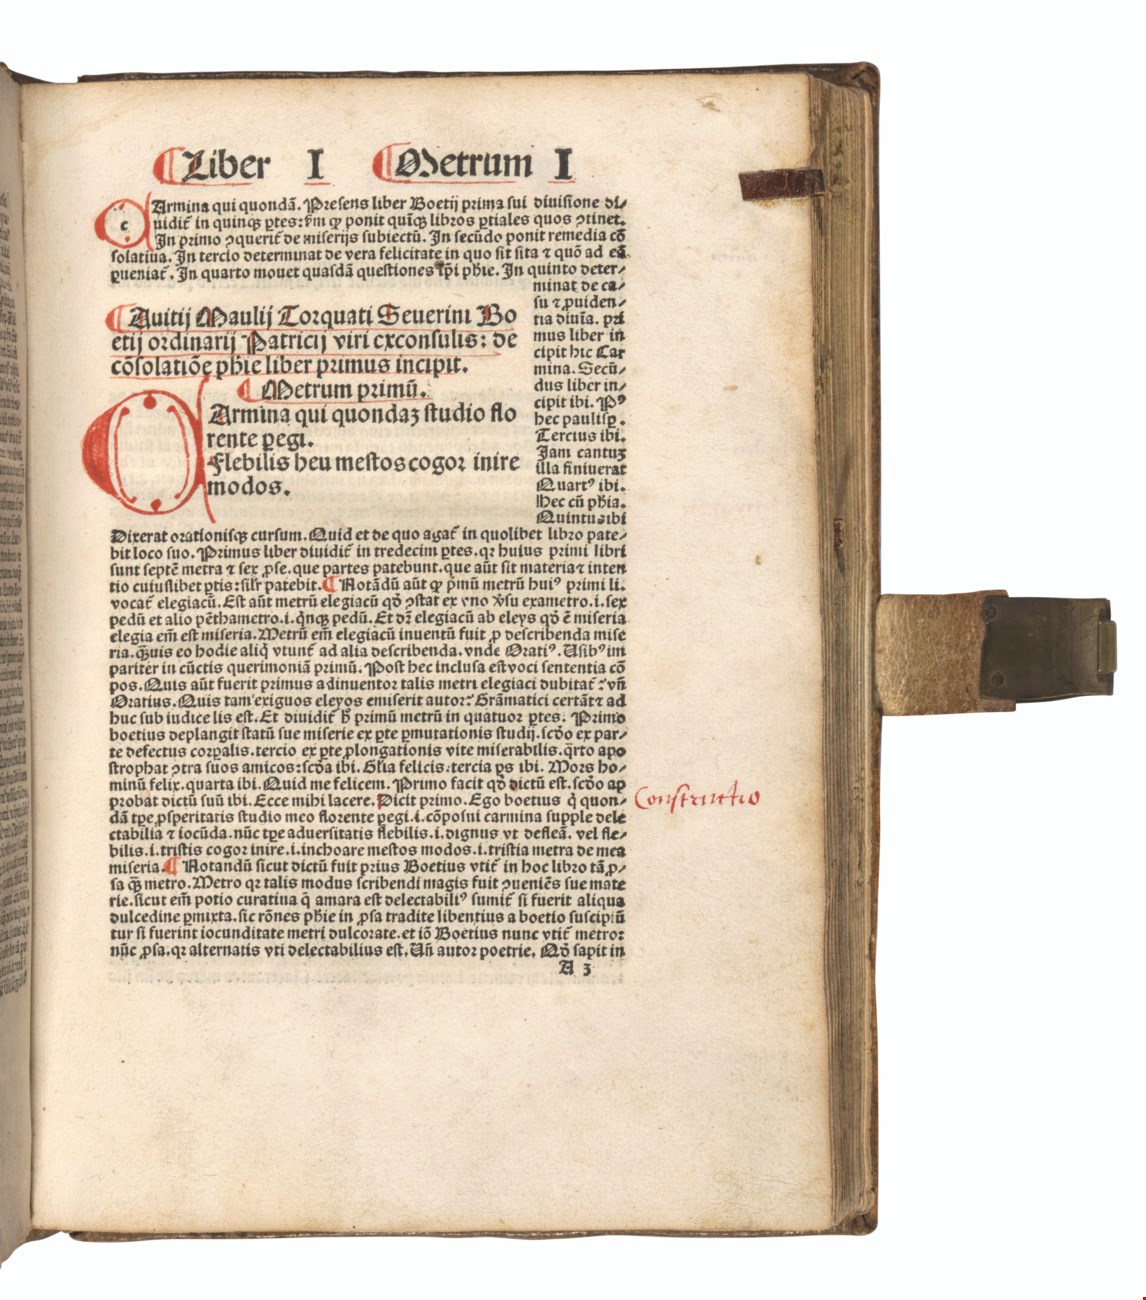 Liber I Metrum I
c Armina qui quondã. Presens liber Boetij prima sui diuisione di⸗
uidit᷑ in quinqꝫ ꝑtes: ẜm ꝙ ponit quĩqꝫ libros ꝑtiales quos ꝯtinet.
In primo ꝯquerit᷑ de miserijs subiectũ. In secũdo ponit remedia cõ
solatiua. In tercio determinat de vera felicitate in quo sit sita ⁊ quõ ad eã
ꝑueniat᷑. In quarto mouet quasdã questiones phie. In quinto deter⸗
minat de ca⸗
su ⁊ ꝓuiden⸗
tia diuĩa. pri
mus liber in
cipit hic Car
mina. Secũ⸗
dus liber in⸗
cipit ibi. Pꝰ
hec paulisꝑ.
Tercius ibi.
Jam cantuꝫ
illa finiuerat
Quartꝰ ibi.
Hec cũ phia.
Quintus ibi
Auitij Maulij Torquati Seuerini Bo
etij ordinarij Patricij viri exconsulis: de
cõsolatiõe phie liber primus incipit.
Metrum primũ.
C Armina qui quondaꝫ studio flo
rente ꝑegi.
Flebilis heu mestos cogor inire
modos.
Dixerat orationisqꝫ cursum. Quid et de quo agat᷑ in quolibet libro pate⸗
bit loco suo. Primus liber diuidit᷑ in tredecim ꝑtes. qꝛ huius primi libri
sunt septẽ metra ⁊ sex ꝓse. que partes patebunt. que aũt sit materia ⁊ inten
tio cuiuslibet ꝑtis: silr̃ patebit. Notãdũ aũt ꝙ pꝛmũ metrũ huiꝰ primi li.
vocat᷑ elegiacũ. Est aũt metrũ elegiacũ qđ ꝯstat ex vno v̾su exametro .i. sex
pedũ et alio pẽthametro .i. qͥnqꝫ pedũ. Et dr̃ elegiacũ ab eleys qđ ẽ miseria
elegia em̃ est miseria. Metrũ em̃ elegiacũ inuentũ fuit ꝓ describenda mise
ria. qͣuis eo hodie aliqͥ vtunt᷑ ad alia describenda. vnde Oratiꝰ. Usibꝰ im
pariter in cũctis querimoniã primũ. Post hec inclusa est voci sententia cõ
pos. Quis aũt fuerit primus adinuentor talis metri elegiaci dubitat᷑: vñ
Oratius. Quis tam exiguos eleyos emiserit autor: Grãmatici certãt ⁊ ad
huc sub iudice lis est. Et diuidit᷑ hͦ primũ metrũ in quatuor ꝑtes. Primo
boetius deplangit statũ sue miserie ex ꝑte ꝑmutationis studij. scđo ex par⸗
te defectus corꝑalis. tercio ex ꝑte ꝓlongationis vite miserabilis. qͣrto apo
strophat ꝯtra suos amicos: scđa ibi. Glia felicis. tercia ꝑs ibi. Mors ho⸗
minũ felix. quarta ibi. Quid me felicem. Primo facit qđ dictũ est. scđo ap
probat dictũ suũ ibi. Ecce mihi lacere. Dicit primo. Ego boetius qͥ quon⸗
dã tꝑe ꝓsperitatis studio meo florente ꝑegi .i. cõposui carmina supple dele
ctabilia ⁊ iocũda. nũc tꝑe aduersitatis flebilis .i. dignus vt defleã. vel fle⸗
bilis .i. tristis cogor inire .i. inchoare mestos modos .i. tristia metra de mea
miseria. Notandũ sicut dictũ fuit prius Boetius vtit᷑ in hoc libro tã ꝓ⸗
sa qͣꝫ metro. Metro qꝛ talis modus scribendi magis fuit ꝯueniẽs sue mate
rie. sicut em̃ potio curatiua qͥ amara est delectabiliꝰ sumit᷑ si fuerit aliqua
dulcedine ꝑmixta. sic rõnes phie in ꝓsa tradite libentius a boetio suscipiũ
tur si fuerint iocunditate metri dulcorate. et iõ Boetius nunc vtit᷑ metro:
nũc ꝓsa. qꝛ alternatis vti delectabilius est. Uñ autor poetrie. Qđ sapit in
A 3
Constructio